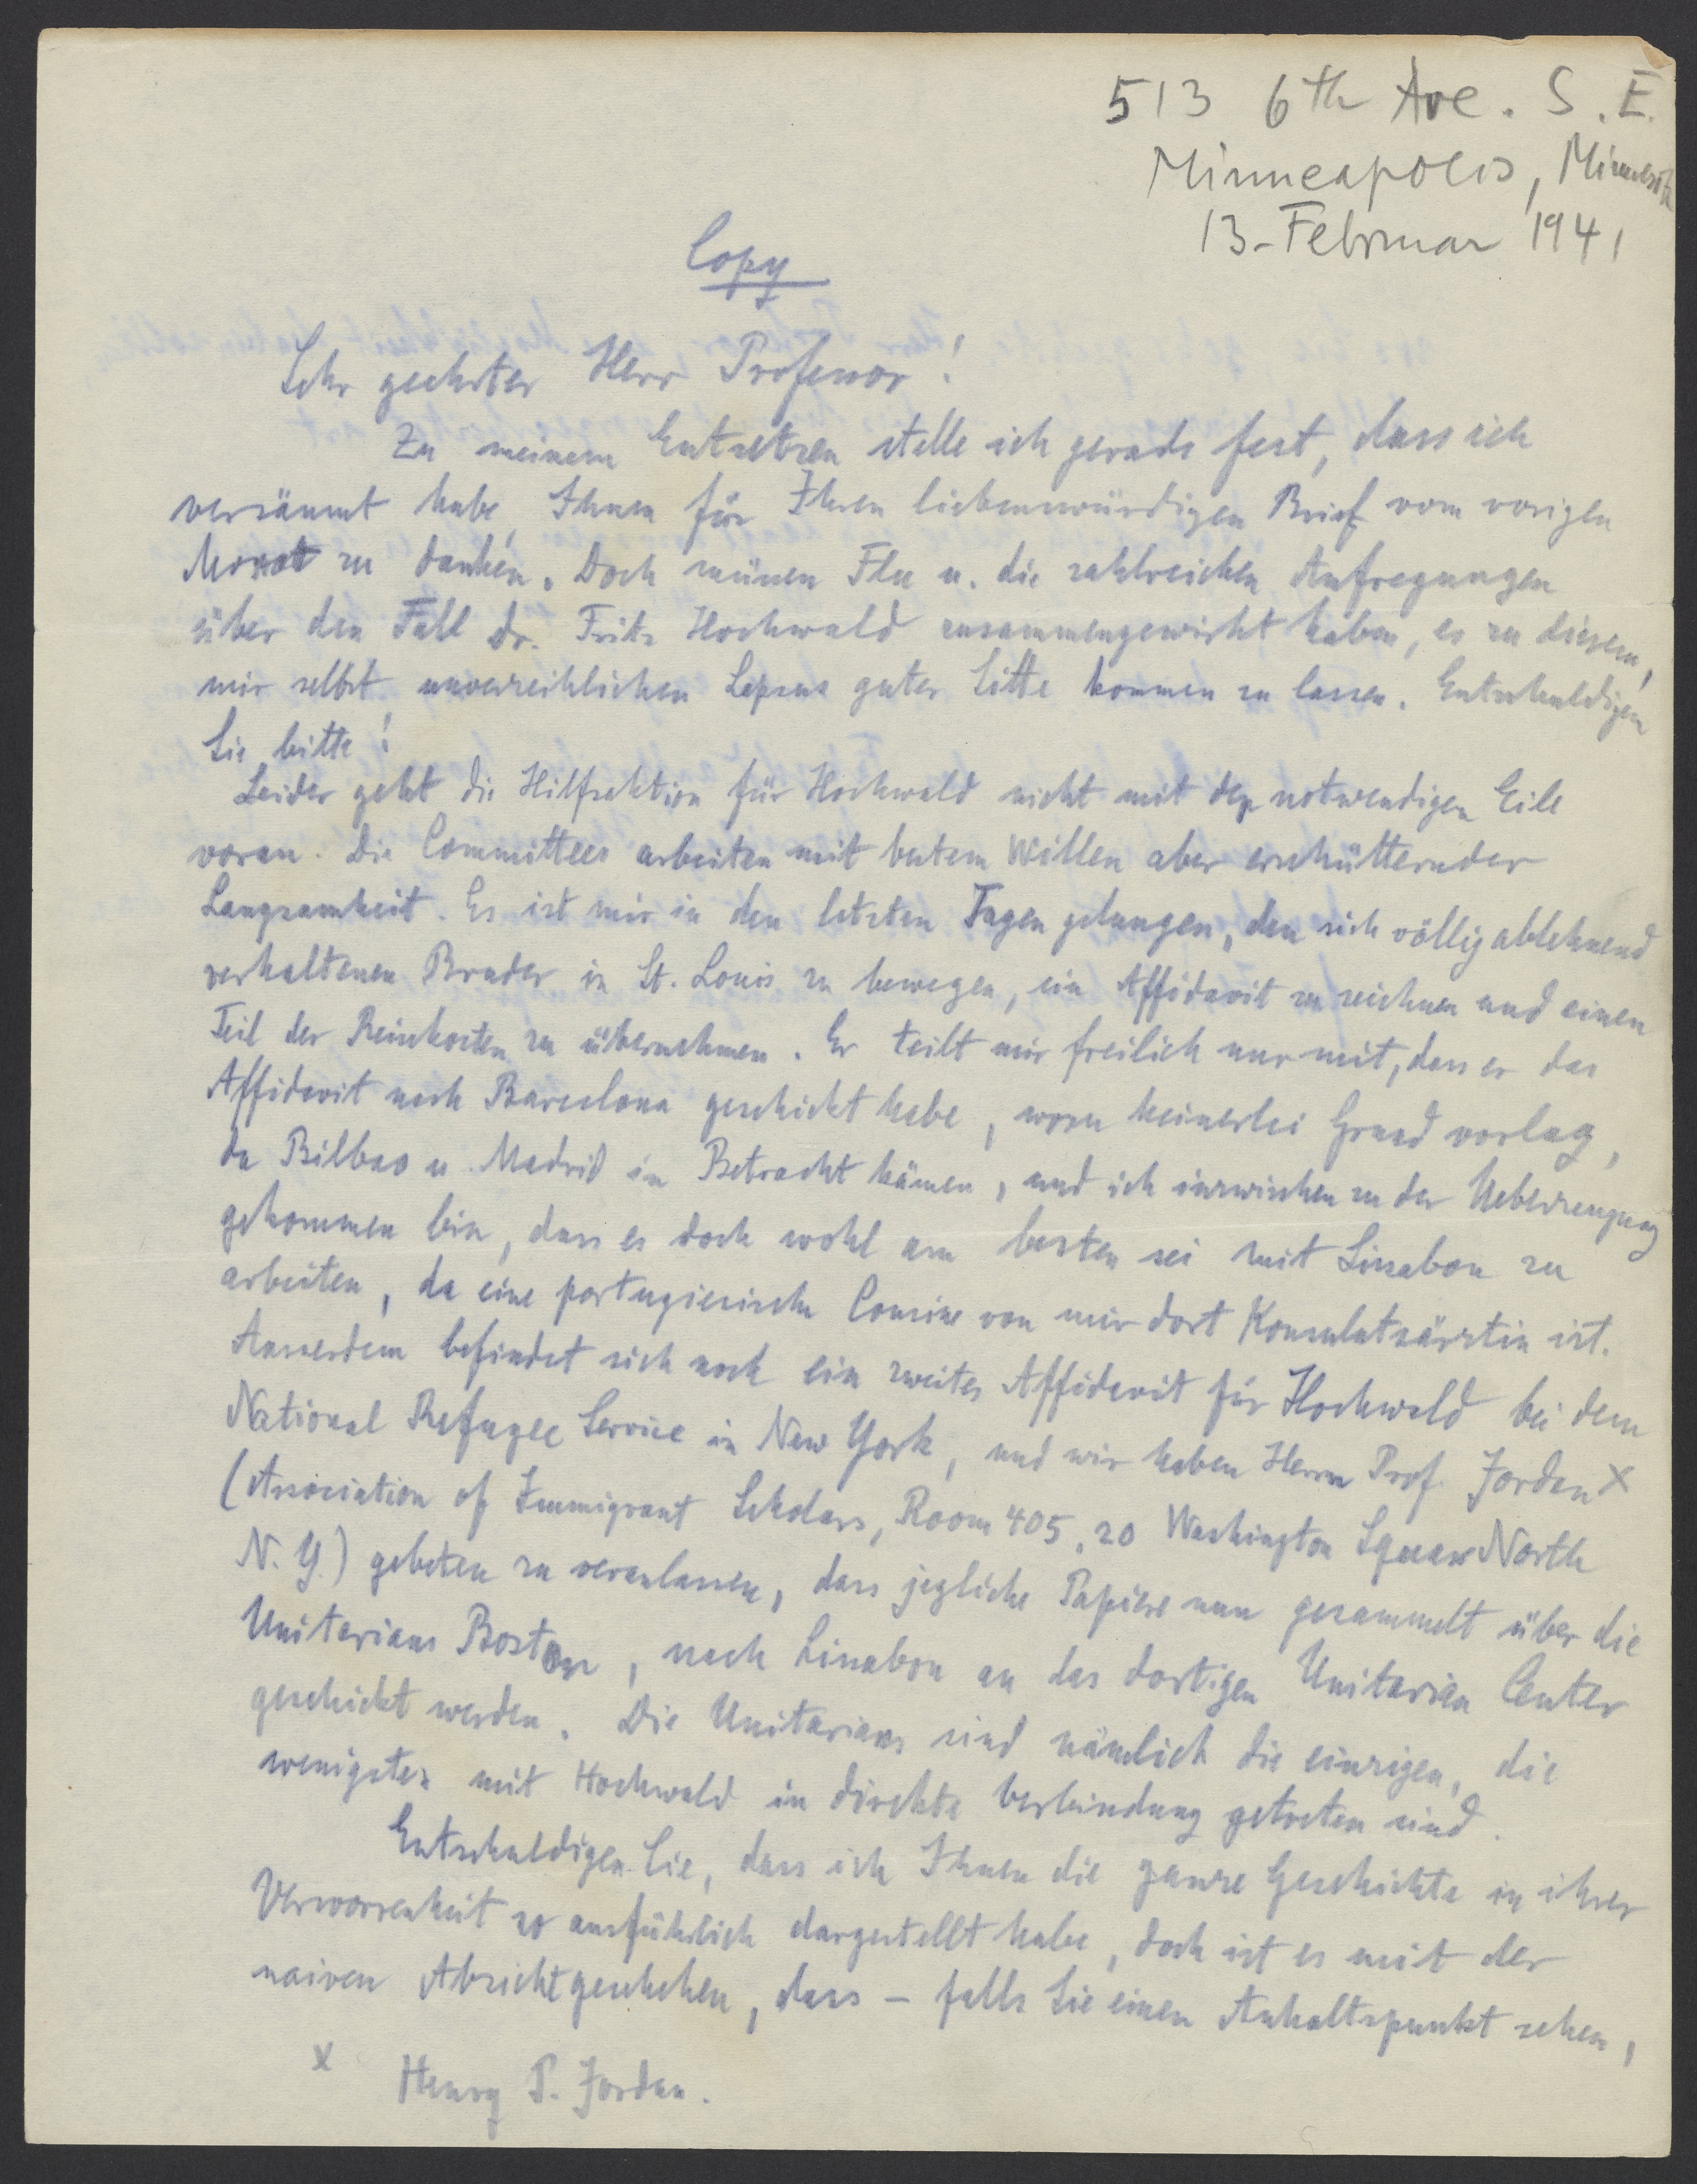 513 6th Ave. S.E.
Minneapolis, Minnesota
13. Februar 1941
Copy
Sehr geehrter Herr Professor!
Zu meinem Entsetzen stelle ich gerade fest, dass ich
versäumt habe, Ihnen für Ihren liebenswürdigen Brief vom vorigen
Monat zu danken. Doch müssen Flu u. die zahlreichen Aufregungen
über den Fall Dr. Fritz Hochwald zusammengewirkt haben, es zu diesem,
mir selbst unverzeihlichen Lapsus guter Sitte kommen zu lassen. Entschuldigen
Sie bitte!
Leider geht die Hilfsaktion für Hochwald nicht mit der notwendigen Eile
voran. Die Committees arbeiten mit bestem Willen aber erschütternder
Langsamkeit. Es ist mir in den letzten Tagen gelungen, den sich völlig ablehnend
verhaltenen Bruder in St. Louis zu bewegen, ein Affidavit zu zeichnen und einen
Teil der Reisekosten zu übernehmen. Er teilt mir freilich nur mit, dass er das
Affidavit nach Barcelona geschickt habe, wozu keinerlei Grund vorlag,
da Bilbao u. Madrid in Betracht kämen, und ich inzwischen zu der Ueberzeugung
gekommen bin, dass es doch wohl am besten sei mit Lissabon zu
arbeiten, da eine portugiesische Cousine von mir dort Konsulatsärztin ist.
Ausserdem befindet sich noch ein zweites Affidavit für Hochwald bei dem
National Refugee Service in New York, und wir haben Herrn Prof. Jordan x
(Association of Immigrant Scholars, Room 405, 20 Washington Square North
N.Y.) gebeten zu veranlassen, dass jegliche Papiere nun gesammelt über die
Unitarians Boston, nach Lissabon an das dortigen Unitarian Center
geschickt werden. Die Unitarians sind nämlich die einzigen, die
wenigstens mit Hochwald in direkte Verbindung getreten sind.
Entschuldigen Sie, dass ich Ihnen die ganze Geschichte in ihrer
Verworrenheit so ausführlich dargestellt habe, doch ist es mit der
naiven Absicht geschehen, dass – falls Sie einen Anhaltspunkt sehen,
x Henry P. Jordan.